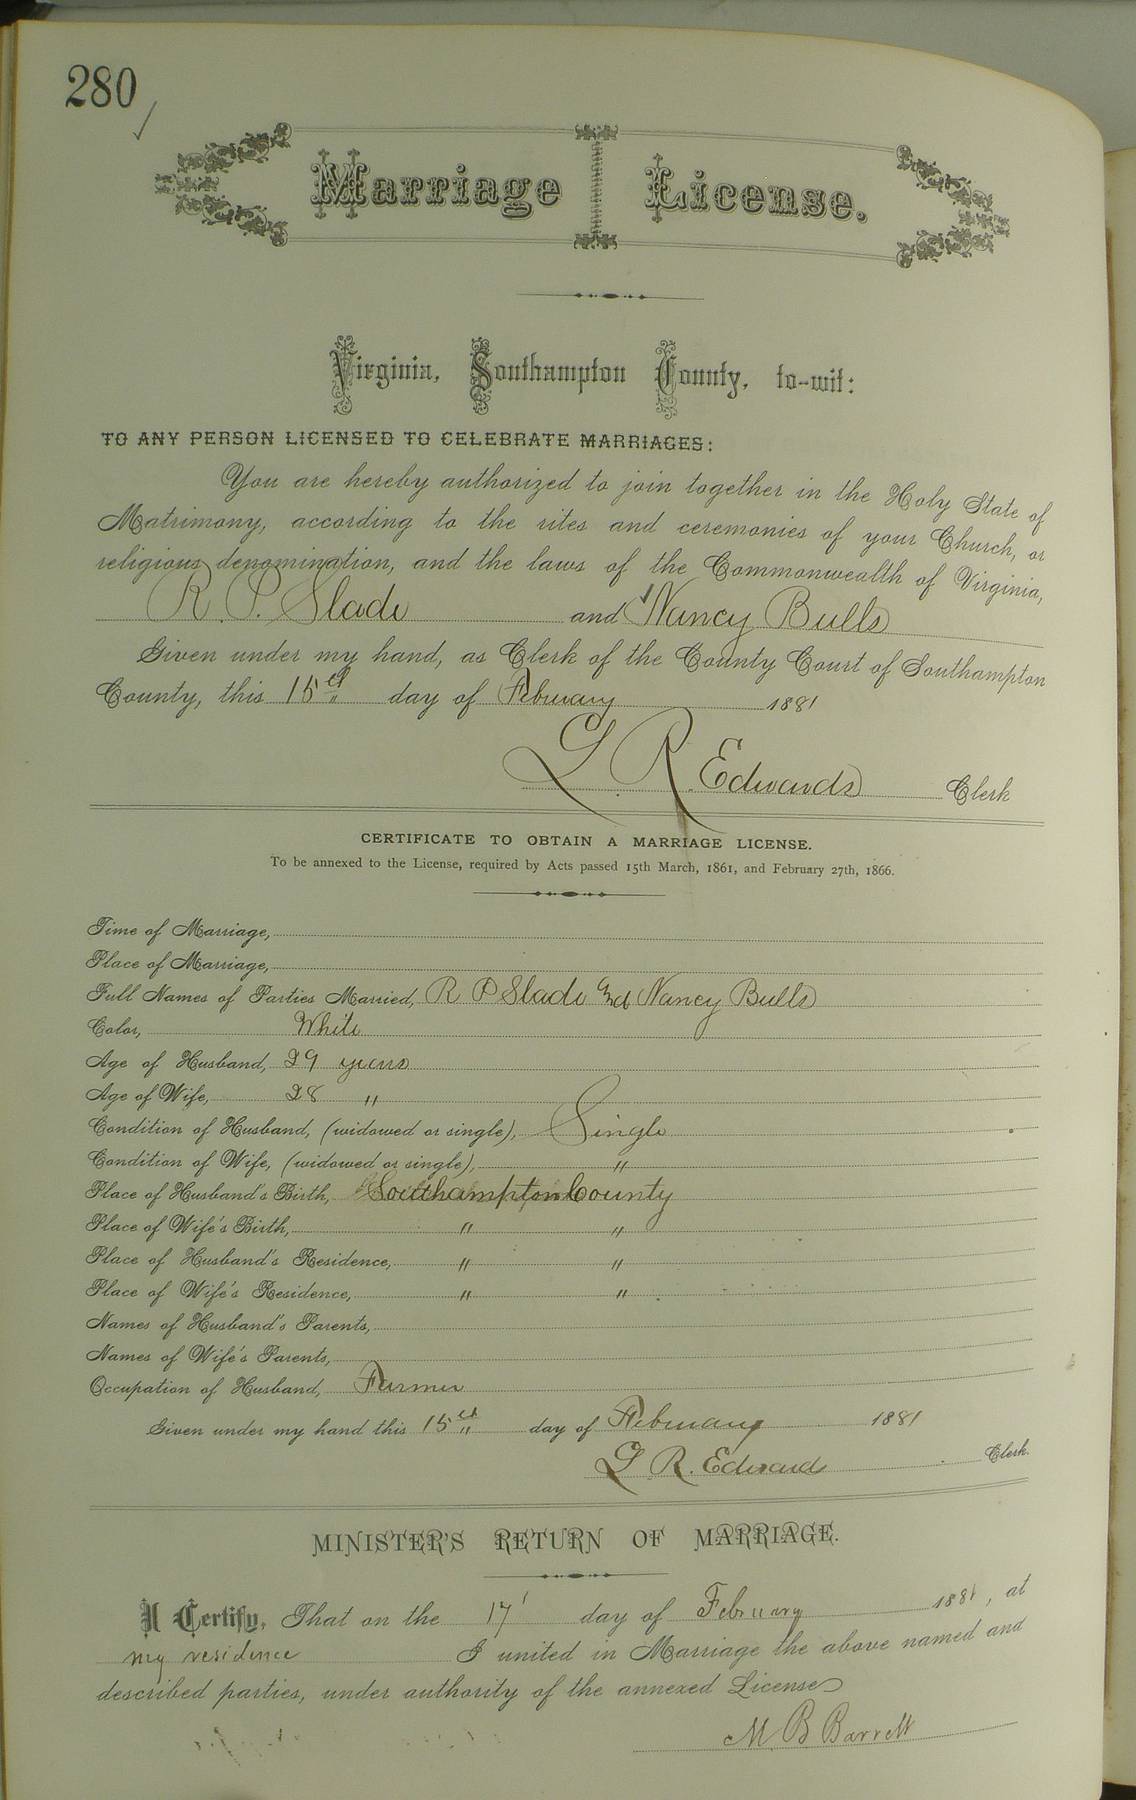 280
Marriage License.
Virginia, Southampton County, to-wit:
TO ANY PERSON LICENSED TO CELEBRATE MARRIAGES:
You are hereby authorized to join together in the Holy State of
Matrimony, according to the rites and ceremonies of your Church, or
religious denomination, and the laws of the Commonwealth of Virginia,
R. P. Slade and Nancy Bulls
Given under my hand, as Clerk of the County Court of Southampton
County, this 15th day of February 1881
L R Edwards Clerk
CERTIFICATE TO OBTAIN A MARRIAGE LICENSE.
To be annexed to the License, required by Acts passed 15th March, 1861, and February 27th, 1866.
Time of Marriage,
Place of Marriage,
Full Names of Parties Married, R P Slade and Nancy Bulls
Color, White
Age of Husband, 29 years
Age of Wife, 28 "
Condition of Husband, (widowed or single), Single
Condition of Wife, (widowed or single), "
Place of Husband's Birth, Southampton County
Place of Wife's Birth, " "
Place of Husband's Residence, " "
Place of Wife's Residence, " "
Names of Husband's Parents,
Names of Wife's Parents,
Occupation of Husband, Farmer
Given under my hand this 15th day of February 1881
L R. Edwards Clerk.
MINISTER'S RETURN OF MARRIAGE.
I Certify, That on the 17 day of February 1881, at
my residence I united in Marriage the above named and
described parties, under authority of the annexed License
M. B Barrett